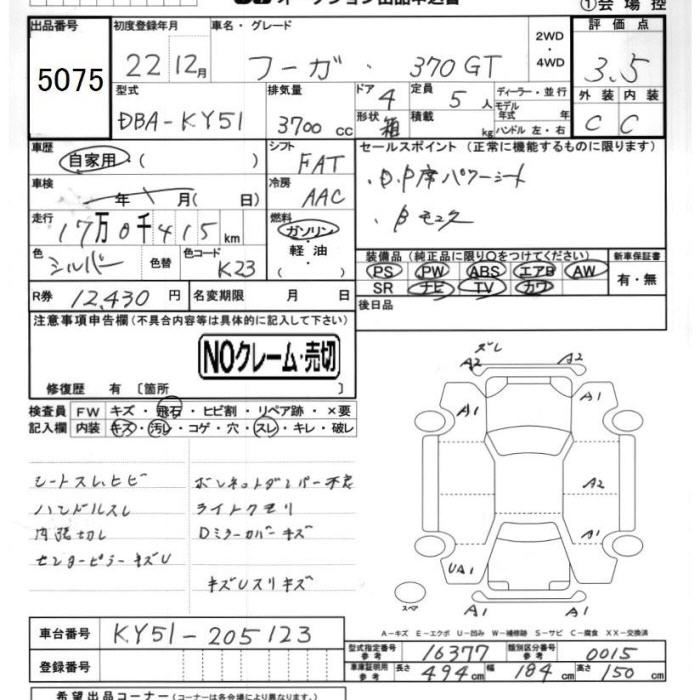 オークション出品申込書 ①会場控
出品番号 5075
初度登録年月 22年12月
車名・グレード フーガ・370GT
2WD・4WD
評価点 3.5
外装 C 内装 C
型式 DBA-KY51
排気量 3700cc
ドア 4 形状 箱
定員 5人 積載 kg
ディーラー・並行
モデル年式 年
ハンドル 左・右
車歴 自家用・( )
シフト FAT
セールスポイント(正常に機能するものに限ります)
・D,P席パワーシート
車検 年 月(日)
冷房 AAC
走行 17万0千415km
燃料 ガソリン・軽油( )
色 シルバー 色替 色コード K23
装備品(純正品に限り○をつけてください) 新車保証書
PS PW ABS エアB AW 有・無
SR ナビ TV カワ
R券 12,430円 名変期限 月 日
後日品
注意事項申告欄(不具合内容等は具体的に記入して下さい)
NOクレーム・売切
修復歴 有〔箇所 〕
検査員 FW キズ・飛石・ヒビ割・リペア跡・×要
記入欄 内装 キズ・汚レ・コゲ・穴・スレ・キレ・破レ
シートスレ,ヒビ
ハンドルスレ
内張切レ
センターピラーキズU
ボンネットダンパー不良
ライトクモリ
Dミラーカバーキズ
キズUスリキズ
ズレ
A2 A2
A1 A1
A2
A1
UA1
A1 A1
スペア
A-キズ E-エクボ U-凹み W-補修跡 S-サビ C-腐食 XX-交換済
車台番号 KY51-205123
型式指定番号 参考 16377 類別区分番号 参考 0015
登録番号
車庫証明用 参考 長さ 494cm 幅 184cm 高さ 150cm
希望出品コーナー(コーナーは各会場により異なります。)